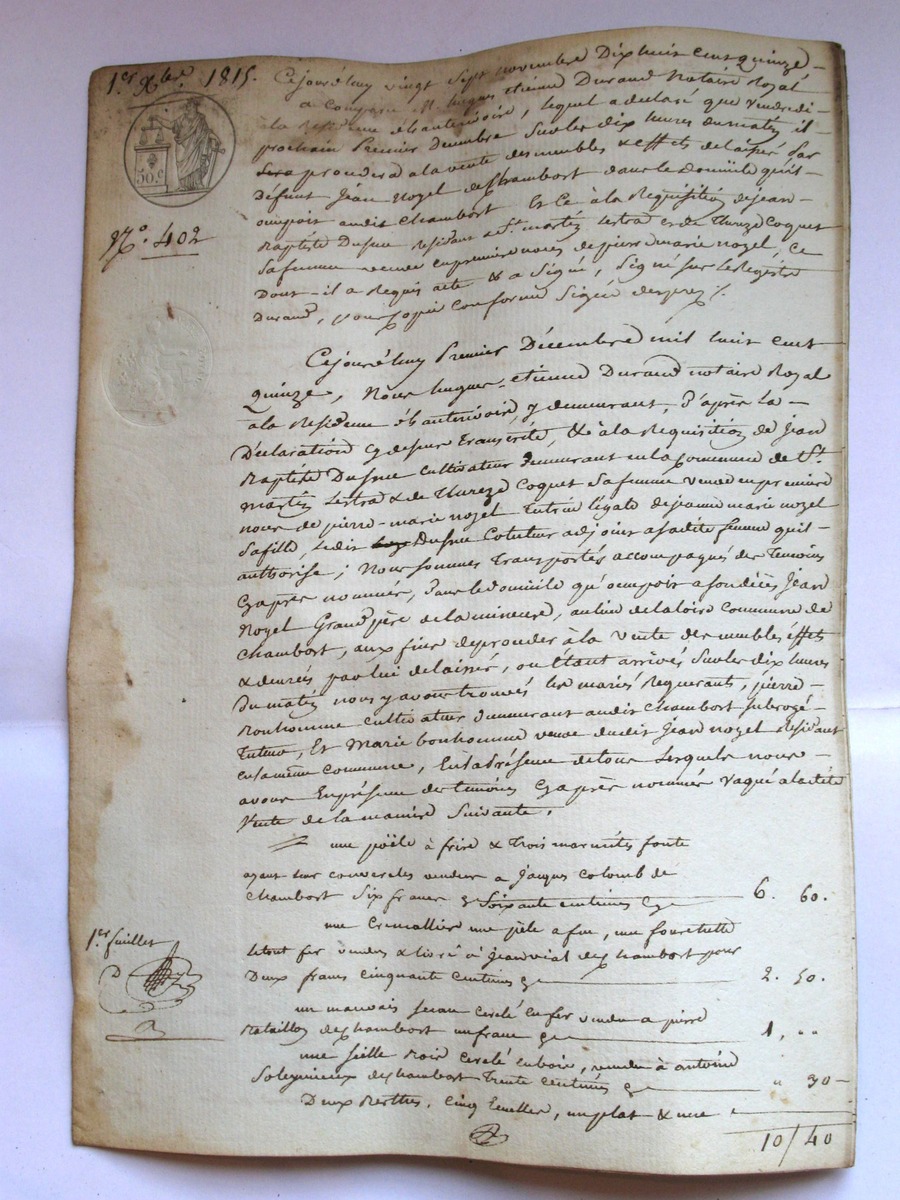 1.er Xbre 1815.
50.c
N.o 402
Cejourd'huy vingt sept novembre Dix huit cent quinze
a Comparu M. hugues etienne Durand Notaire Royal
à la Residence de , lequel a declaré que vendredi
prochain Premier decembre Surles dix heures du matin il
procedera a la vente des meubles & effets delaissés par
Défunt Jean Nozel de Chambost dans le Domicile qu'il
occupoit audit Chambost Et Ce à la Requisition de jean
Baptiste Dufour Residant a St. martin Lestra et de Coquet
Safemme veuve en premiere noces de pierre marie nozel, Ce
Dont il a Requis acte & a Signé, Signé sur le Registre
Durand, pour Copie Conforme Signée
Cejourd'huy Premier Décembre mil huit cent
quinze, Nous hugues etienne Durand notaire Royal
à la Residence de , y demeurant, D'après la
Déclaration cy dessus transcrite, & à la Requisition de Jean
Baptiste Dufour Cultivateur demeurant en la Commune de St.
martin Lestra & de Coquet Safemme veuve en premiere
noces de pierre-marie nozel tutrice légale de jeanne marie nozel
Safille, Ledit Dufour Cotuteur adjoint a sadite femme qu'il
authorise; Nous sommes transportés accompagnés des temoins
Cyaprès nommés, dans le domicile qu'occupoit a son décès Jean
Nozel Grand père de la mineure, au lieu de la loire Commune de
Chambost, aux fins de proceder à la vente des meubles effets
& denrés par lui delaissés, ou étant arrivés Surles dix heures
du matin nous y avons trouvés les mariés Requerants, pierre
Bonhomme cultivateur demeurant audit Chambost subrogé
tuteur, Et Marie bonhomme veuve dudit Jean nozel Residant
en la même Commune, En la présence de tous Lesquels nous
avons En présence des temoins Cyaprès nommés Vaqué a ladite
Vente de la maniere Suivante.
une poële à frire & trois marmites fonte
ayant leur couvercles vendus a Jacques Colomb de
Chambost Six francs & Soixante centimes Cy 6. 60.
une Cremalliere une pèle a feu, une fourchette
letout fer vendus & livré à Jean vial de Chambost pour
Deux francs Cinquante Centimes Cy 2. 50.
un mauvais Seau Cerclé en fer vendu a pierre
Bataillon de Chambost un franc Cy 1. "
une Seille Noir Cerclé en bois, vendu à antoine
de Chambost trente centimes Cy " 30
Deux , Cinq , un plat & une
1.er feuillet
10/40